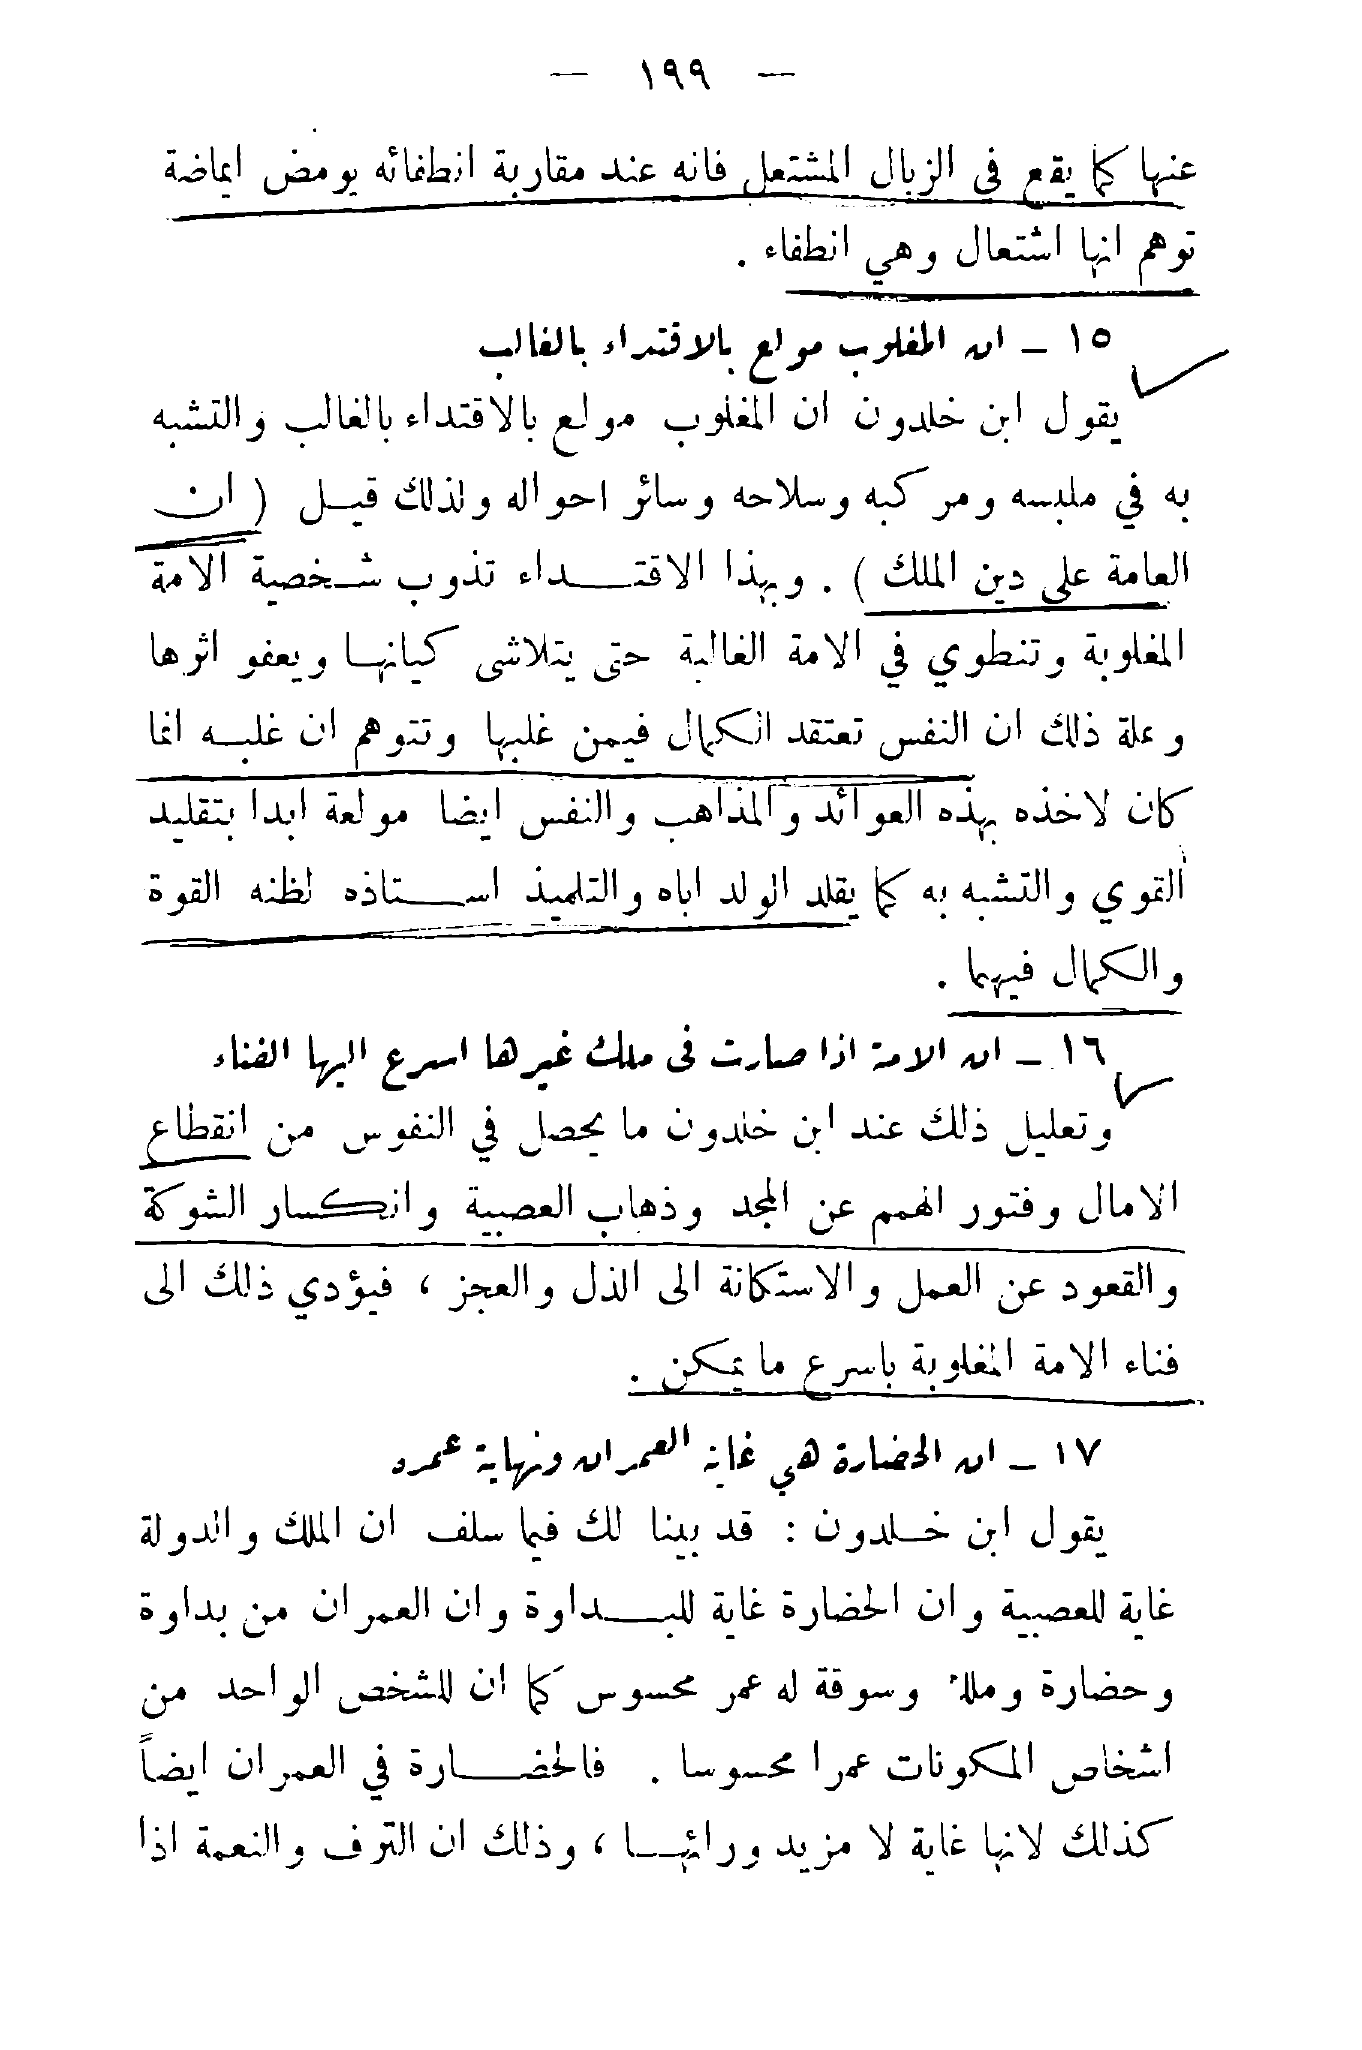 — ١٩٩ —
عنها كما يقع في الزبال المشتعل فانه عند مقاربة انطفائه يومض ايماضة
توهم انها اشتعال وهي انطفاء .
١٥ ـ ان المغلوب مولع بالاقتداء بالغالب
يقول ابن خلدون ان المغلوب مولع بالاقتداء بالغالب والتشبه
به في ملبسه ومركبه وسلاحه وسائر احواله ولذلك قيل ( ان
العامة على دين الملك ) . وبهذا الاقتداء تذوب شخصية الامة
المغلوبة وتنطوي في الامة الغالبة حتى يتلاشى كيانها ويعفو اثرها
وعلة ذلك ان النفس تعتقد الكمال فيمن غلبها وتتوهم ان غلبه انما
كان لاخذه بهذه العوائد والمذاهب والنفس ايضا مولعة ابدا بتقليد
القوي والتشبه به كما يقلد الولد اباه والتلميذ استاذه لظنه القوة
والكمال فيهما .
١٦ ـ ان الامة اذا صارت في ملك غيرها اسرع اليها الفناء
وتعليل ذلك عند ابن خلدون ما يحصل في النفوس من انقطاع
الامال وفتور الهمم عن المجد وذهاب العصبية وانكسار الشوكة
والقعود عن العمل والاستكانة الى الذل والعجز ، فيؤدي ذلك الى
فناء الامة المغلوبة باسرع ما يمكن .
١٧ ـ ان الحضارة هي غاية العمران ونهاية عمره
يقول ابن خلدون : قد بينا لك فيما سلف ان الملك والدولة
غاية للعصبية وان الحضارة غاية للبداوة وان العمران من بداوة
وحضارة وملك وسوقة له عمر محسوس كما ان للشخص الواحد من
اشخاص المكونات عمرا محسوسا . فالحضارة في العمران ايضاً
كذلك لانها غاية لا مزيد ورائها ، وذلك ان الترف والنعمة اذا